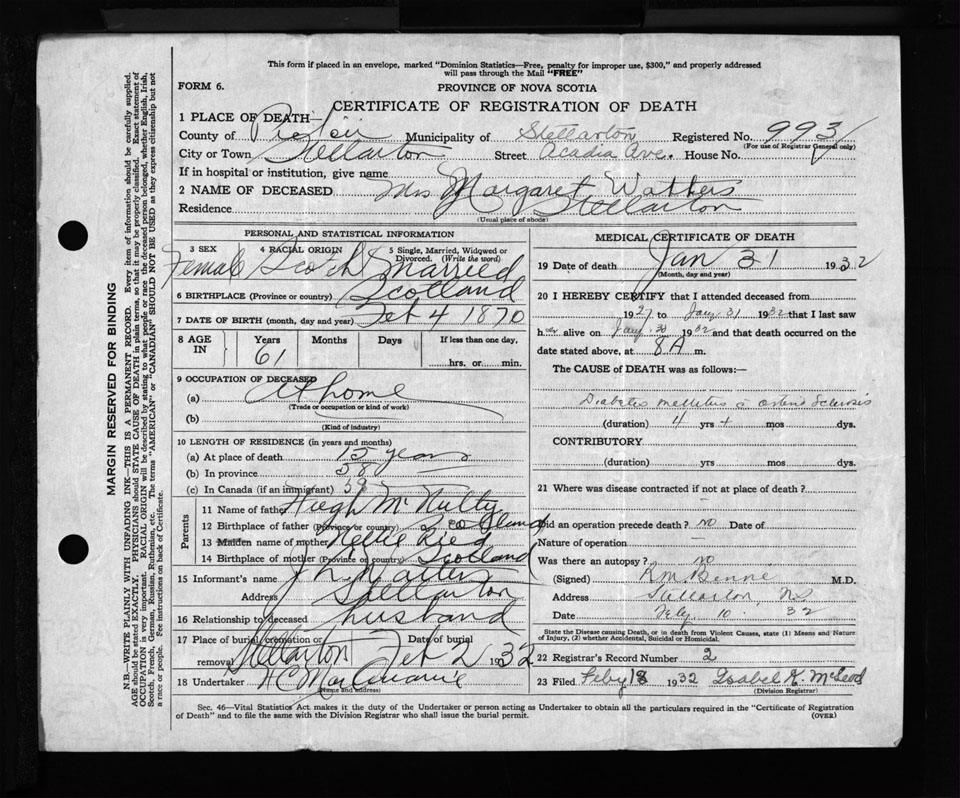 This form if placed in an envelope, marked "Dominion Statistics—Free, penalty for improper use, $300," and properly addressed
will pass through the Mail "FREE"
FORM 6.
PROVINCE OF NOVA SCOTIA
CERTIFICATE OF REGISTRATION OF DEATH
1 PLACE OF DEATH—
County of Pictou Municipality of Stellarton Registered No. 993
(For use of Registrar General only)
City or Town Stellarton Street Acadia Ave. House No.
If in hospital or institution, give name
2 NAME OF DECEASED Mrs Margaret Watters
Residence Stellarton
(Usual place of abode)
PERSONAL AND STATISTICAL INFORMATION
3 SEX 4 RACIAL ORIGIN 5 Single, Married, Widowed or Divorced. (Write the word)
Female Scotch Married
6 BIRTHPLACE (Province or country) Scotland
7 DATE OF BIRTH (month, day and year) Feb 4 1870
8 AGE IN Years Months Days If less than one day,
61 hrs. or min.
9 OCCUPATION OF DECEASED
(a) At home
(Trade or occupation or kind of work)
(b)
(Kind of industry)
10 LENGTH OF RESIDENCE (in years and months)
(a) At place of death 15 years
(b) In province 58
(c) In Canada (if an immigrant) 58
Parents
11 Name of father Hugh McNulty
12 Birthplace of father (Province or country) Scotland
13 Maiden name of mother Nellie Ried
14 Birthplace of mother (Province or country) Scotland
15 Informant's name Watters
Address Stellarton
16 Relationship to deceased husband
17 Place of burial, cremation or removal Stellarton Date of burial Feb 2 1932
18 Undertaker H C
(Name and address)
MEDICAL CERTIFICATE OF DEATH
19 Date of death Jan 31 1932
(Month, day and year)
20 I HEREBY CERTIFY that I attended deceased from
1927 to Jany 31 1932 that I last saw
her alive on Jany 30 1932 and that death occurred on the
date stated above, at 8 A m.
The CAUSE of DEATH was as follows:—
Diabetes mellitus c Arterio Sclerosis
(duration) 4 yrs + mos dys.
CONTRIBUTORY
(duration) yrs. mos. dys.
21 Where was disease contracted if not at place of death?
Did an operation precede death? no Date of
Nature of operation —
Was there an autopsy? no
(Signed) M.D.
Address Stellarton, NS
Date Feby 10 32
State the Disease causing Death, or in death from Violent Causes, state (1) Means and Nature
of Injury, (2) whether Accidental, Suicidal or Homicidal.
22 Registrar's Record Number 2
23 Filed Feby 18 1932 Isabel K. McLeod
(Division Registrar)
Sec. 46—Vital Statistics Act makes it the duty of the Undertaker or person acting as Undertaker to obtain all the particulars required in the "Certificate of Registration
of Death" and to file the same with the Division Registrar who shall issue the burial permit.
(OVER)
MARGIN RESERVED FOR BINDING
N.B.—WRITE PLAINLY WITH UNFADING INK—THIS IS A PERMANENT RECORD. Every item of information should be carefully supplied.
AGE should be stated EXACTLY. PHYSICIANS should STATE CAUSE OF DEATH in plain terms, so that it may be properly classified. Exact statement of
OCCUPATION is very important. RACIAL ORIGIN will be described by stating to what people or race the deceased person belonged, whether English, Irish,
Scotch, French, German, Russian, Ruthenian, etc. The terms "AMERICAN" or "CANADIAN" SHOULD NOT BE USED as they express citizenship but not
a race or people. See instructions on back of Certificate.